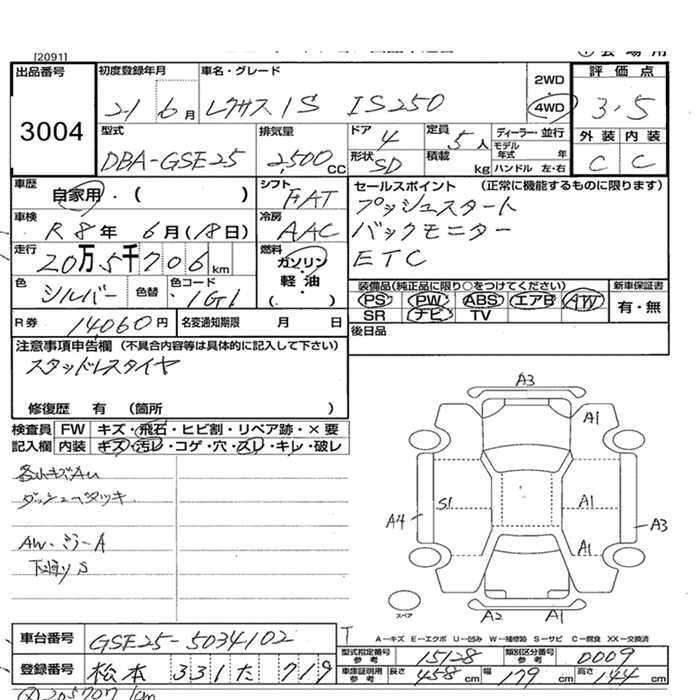 [2091]
出品番号 初度登録年月 車名・グレード 2WD 評価点
3004 21 6月 レクサスIS IS250 4WD 3.5
型式 排気量 ドア 4 定員 5人 ディーラー・並行 外装 内装
DBA-GSE25 2,500CC 形状 SD 積載 kg モデル年式 年 C C
ハンドル 左・右
車歴 自家用・( ) シフト FAT セールスポイント (正常に機能するものに限ります)
車検 R8年 6月(18日) 冷房 AAC プッシュスタート
走行 20万5千706km 燃料 ガソリン・軽油・( ) バックモニター
ETC
色 シルバー 色替 色コード 1G1 装備品(純正品に限り○をつけてください) 新車保証書
PS PW ABS エアB AW 有・無
SR ナビ TV
R券 14060円 名変通知期限 月 日 後日品
注意事項申告欄 (不具合内容等は具体的に記入して下さい)
スタッドレスタイヤ
修復歴 有 (箇所 )
検査員 FW キズ・飛石・ヒビ割・リペア跡・×要
記入欄 内装 キズ・汚レ・コゲ・穴・スレ・キレ・破レ
各小キズAu
ダッシュベタツキ
AW・ミラーA
下廻りS
A3
A1
S1 A1
A4 A3
A1
スペア A2 A1
A－キズ E－エクボ U－凹み W－補修跡 S－サビ C－腐食 XX－交換済
車台番号 GSE25-5034102 型式指定番号 参考 15128 類別区分番号 参考 0009
登録番号 松本 331 た 719 車庫証明用 参考 長さ 458cm 幅 179cm 高さ 144cm
205707km